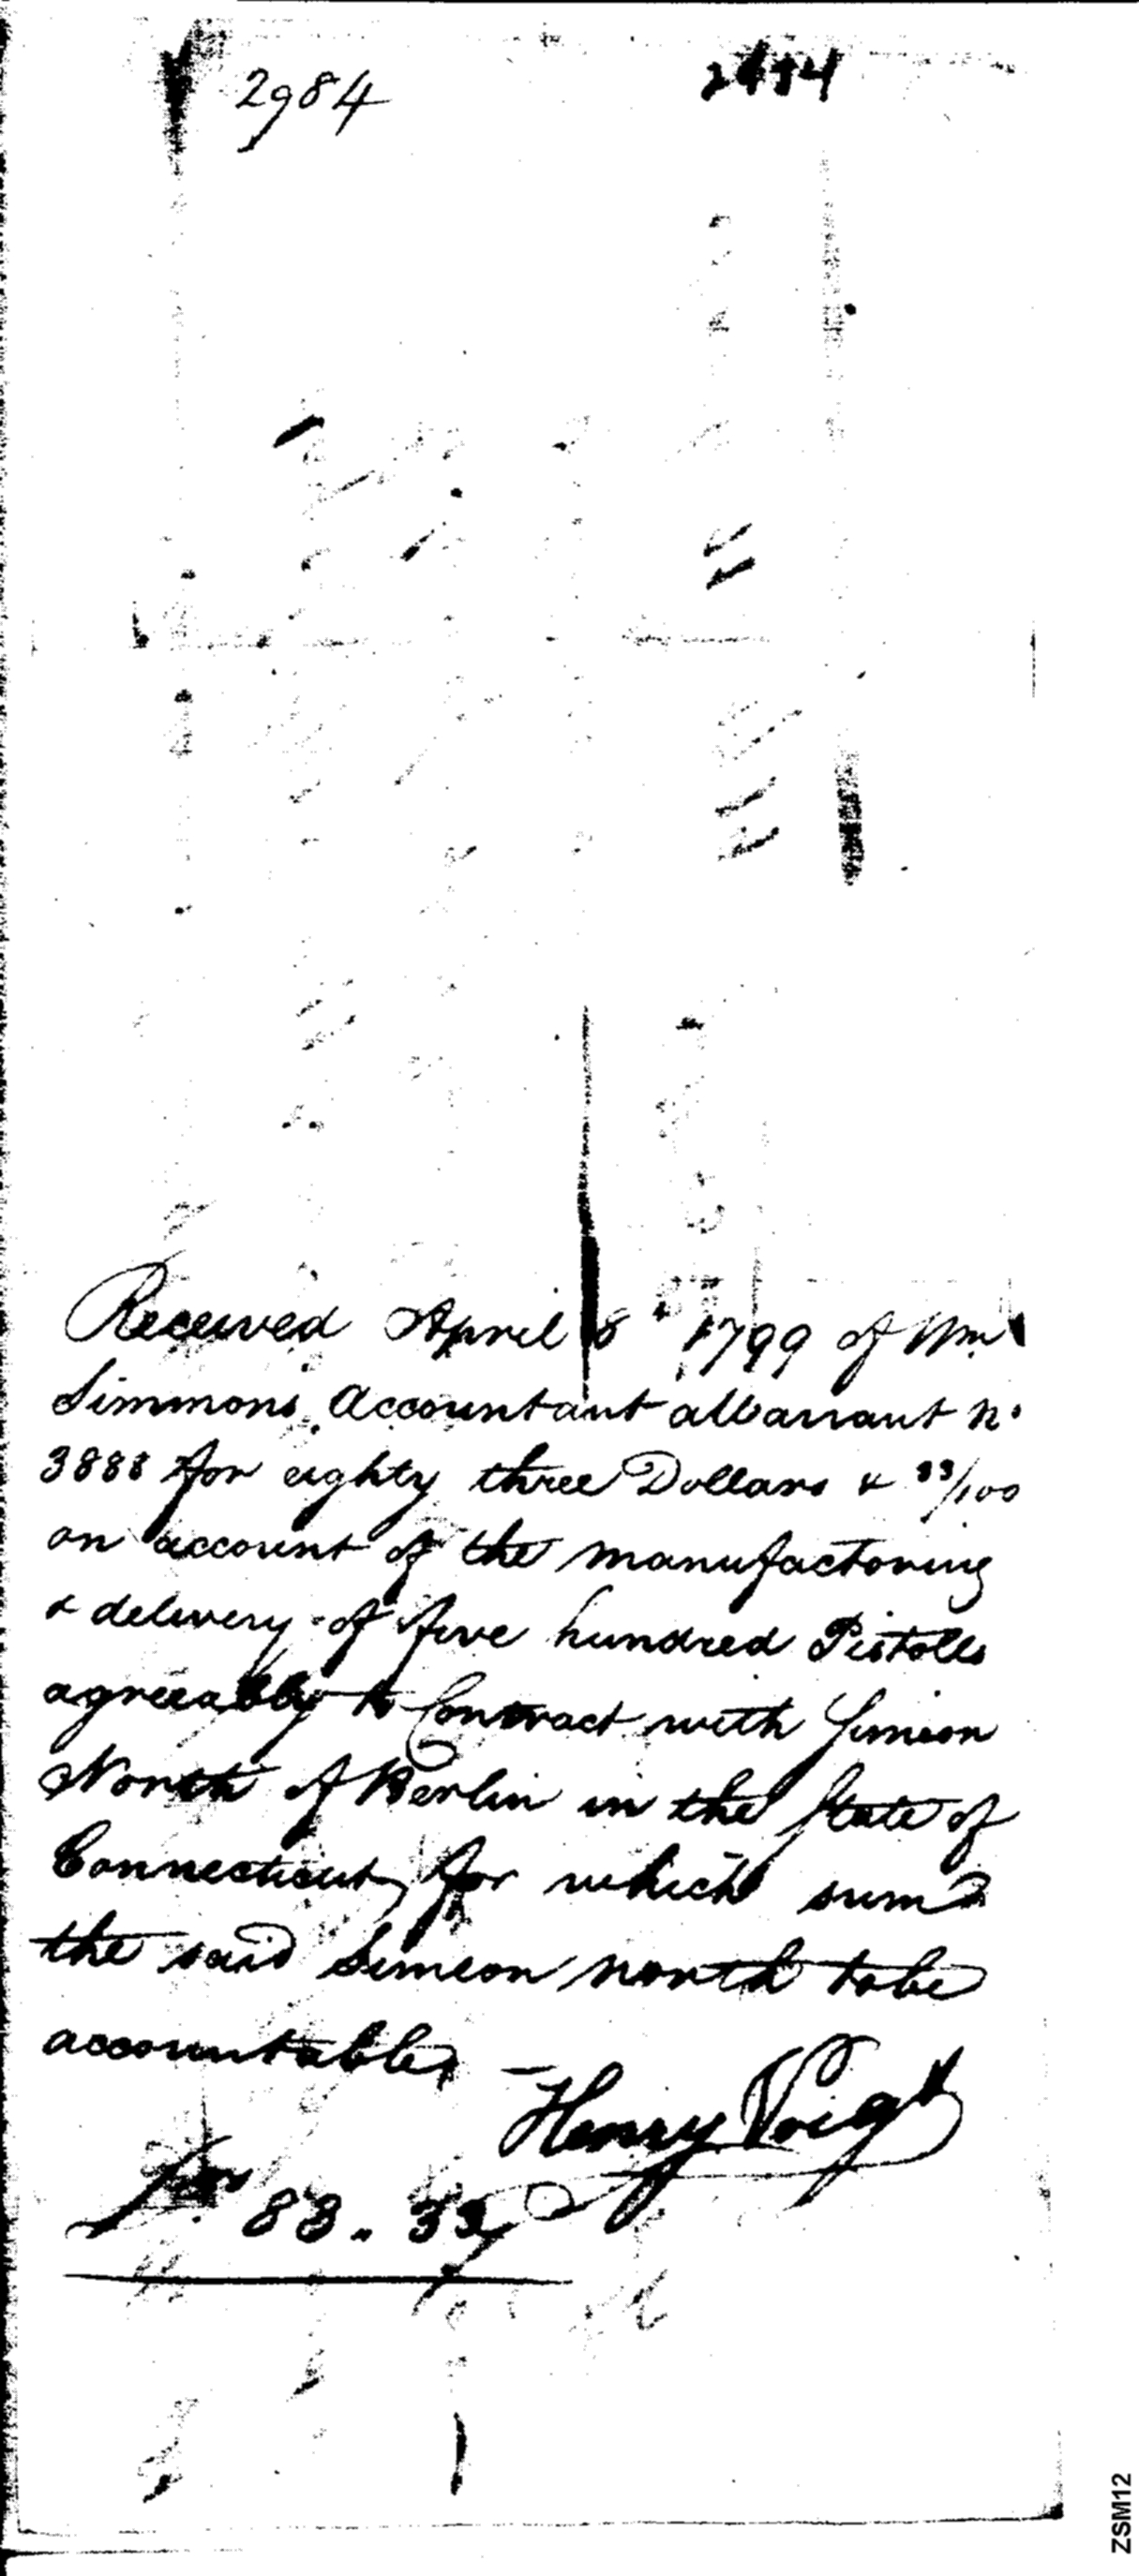 2984
Received April 8 1799 of Wm
Simmons Accountant a Warrant No
3888 for eighty three Dollars & 33/100
on account of the manufactoring
& delivery of five hundred Pistolls
agreeably to Contract with Simeon
North of Berlin in the State of
Connecticut, for which sum
the said Simeon north to be
accountable,
Henry Voigt
83.33
ZSM12